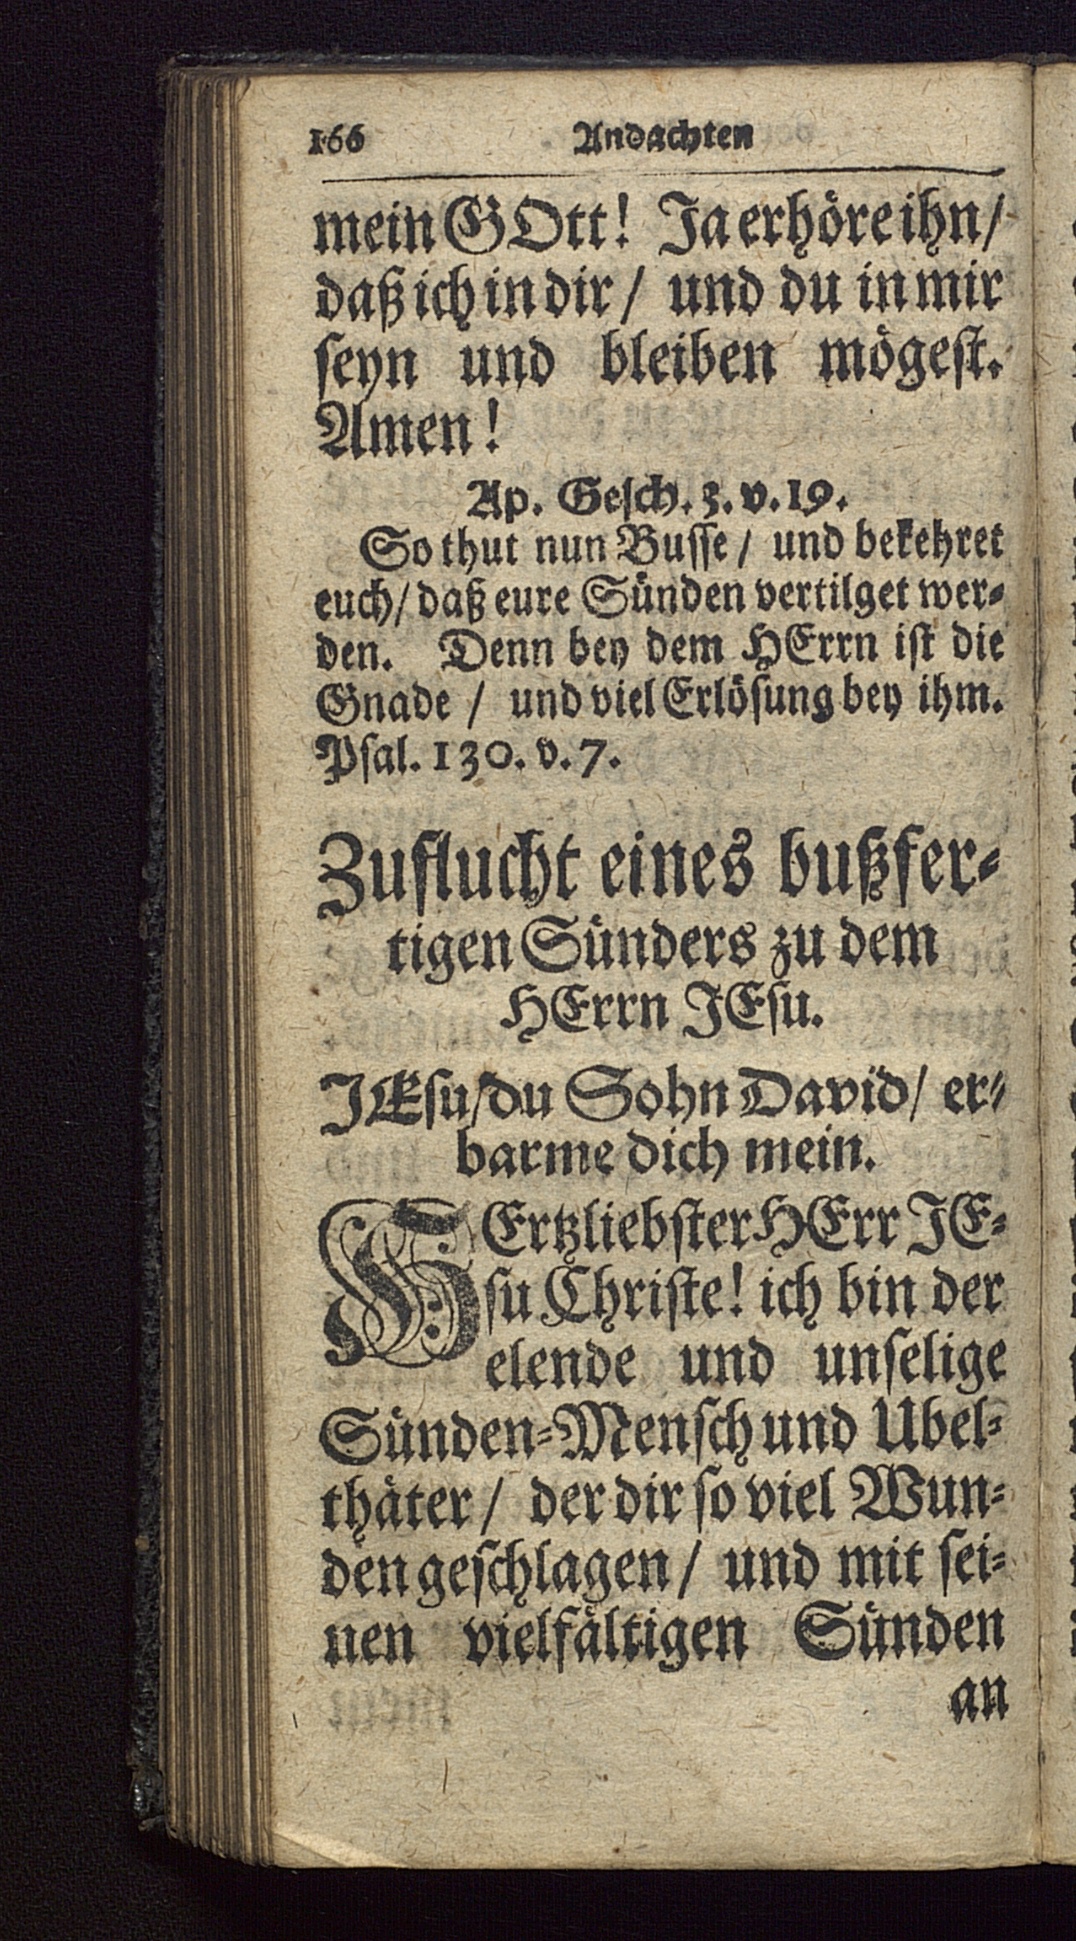 166 Andachten
mein GOtt! Ja erhöre ihn/
daß ich in dir / und du in mir
seyn und bleiben mögest.
Amen!
Ap. Gesch. 3. v. 19.
So thut nun Busse / und bekehret
euch/ daß eure Sünden vertilget wer-
den. Denn bey dem HErrn ist die
Gnade / und viel Erlösung bey ihm.
Psal. 130. v. 7.
Zuflucht eines bußfer-
tigen Sünders zu dem
HErrn JEsu.
JEsu/du Sohn David/ er-
barme dich mein.
HErtzliebster HErr JE-
su Christe! ich bin der
elende und unselige
Sünden-Mensch und Ubel-
thäter / der dir so viel Wun-
den geschlagen / und mit sei-
nen vielfältigen Sünden
an